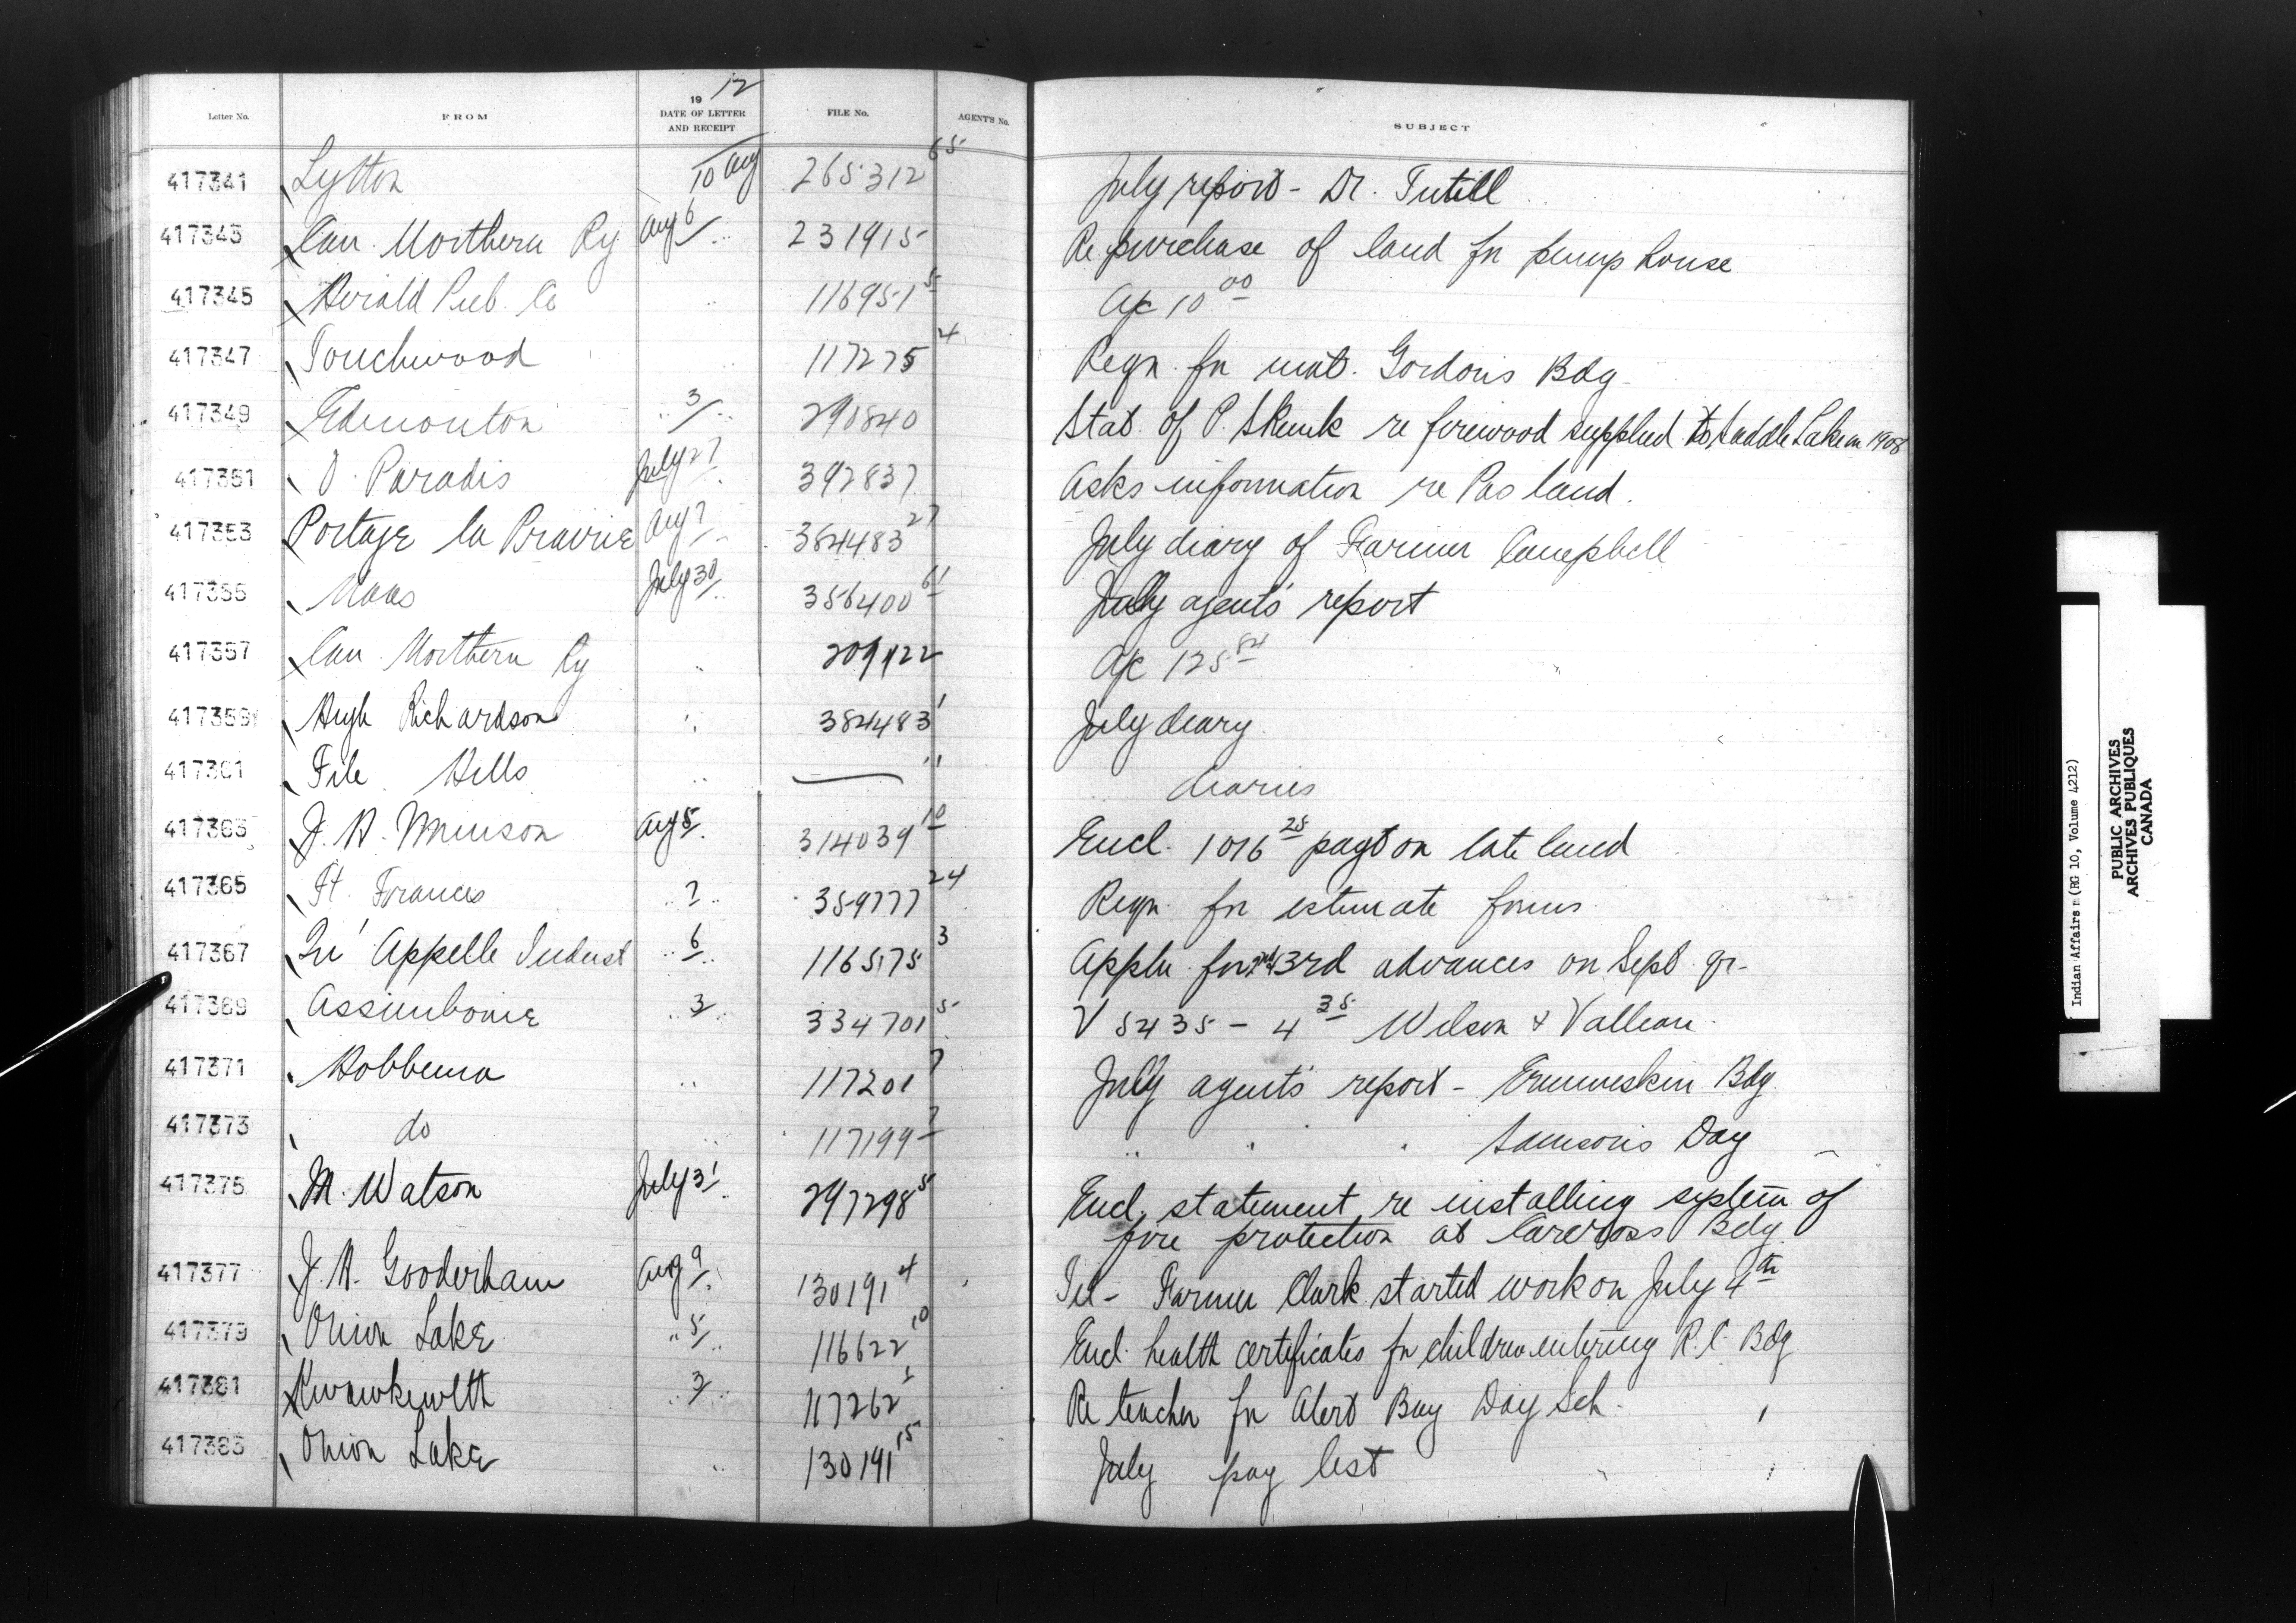 Letter No. FROM 1912 DATE OF LETTER AND RECEIPT FILE No. AGENT'S No. SUBJECT
417341 Lytton 10 Aug 265312 65 July report - Dr. Tutill
417343 Can. Northern Ry Aug 6 231915 Re purchase of land for pump house
417345 Herald Pub. Co " 116951 5 A/c 10 00
417347 Touchwood " 117275 4 Reqn. for mat. Gordons Bdg
417349 Edmonton " 3 " 290840 Stat. of P. Skunk re firewood supplied to Saddle Lake in 1908
417351 O. Paradis July 27 392837 Asks information re Pas land.
417353 Portage la Prairie Aug 7 384483 27 July diary of Farmer Campbell
417355 Naas July 30 356400 61 July agent's report
417357 Can. Northern Ry " 209122 A/c 125 84
417359 Hugh Richardson " 384483 1 July diary
417361 File Hills " — " " diaries
417363 J. H. Munson Aug 5 314039 10 Encl. 1016 25 payt on late land
417365 Ft. Frances " 7 " 359777 24 Reqn. for estimate forms
417367 Qu'Appelle Indust " 6 " 116575 3 Appln. for 2nd & 3rd advances on Sept qr-
417369 Assiniboine " 3 " 334701 5 V 5435 - 4 35 Wilson & Valleau
417371 Hobbema " 117201 7 July agent's report - Ermineskin Bdg
417373 do " 117199 7 " " " Samson's Day
417375 M. Watson July 31 297298 5 Encl. statement re installing system of
fire protection at Carcross Bdg.
417377 J. H. Gooderham Aug 9 130191 4 Tel - Farmer Clark started work on July 4th
417379 Onion Lake " 5 " 116622 10 Encl. health certificates for children entering R.C. Bdg
417381 Kwawkewlth " 3 " 117262 1 Re teacher for Alert Bay Day Sch.
417383 Onion Lake " 130191 15 July pay list
Indian Affairs (RG 10, Volume 4212)
PUBLIC ARCHIVES
ARCHIVES PUBLIQUES
CANADA